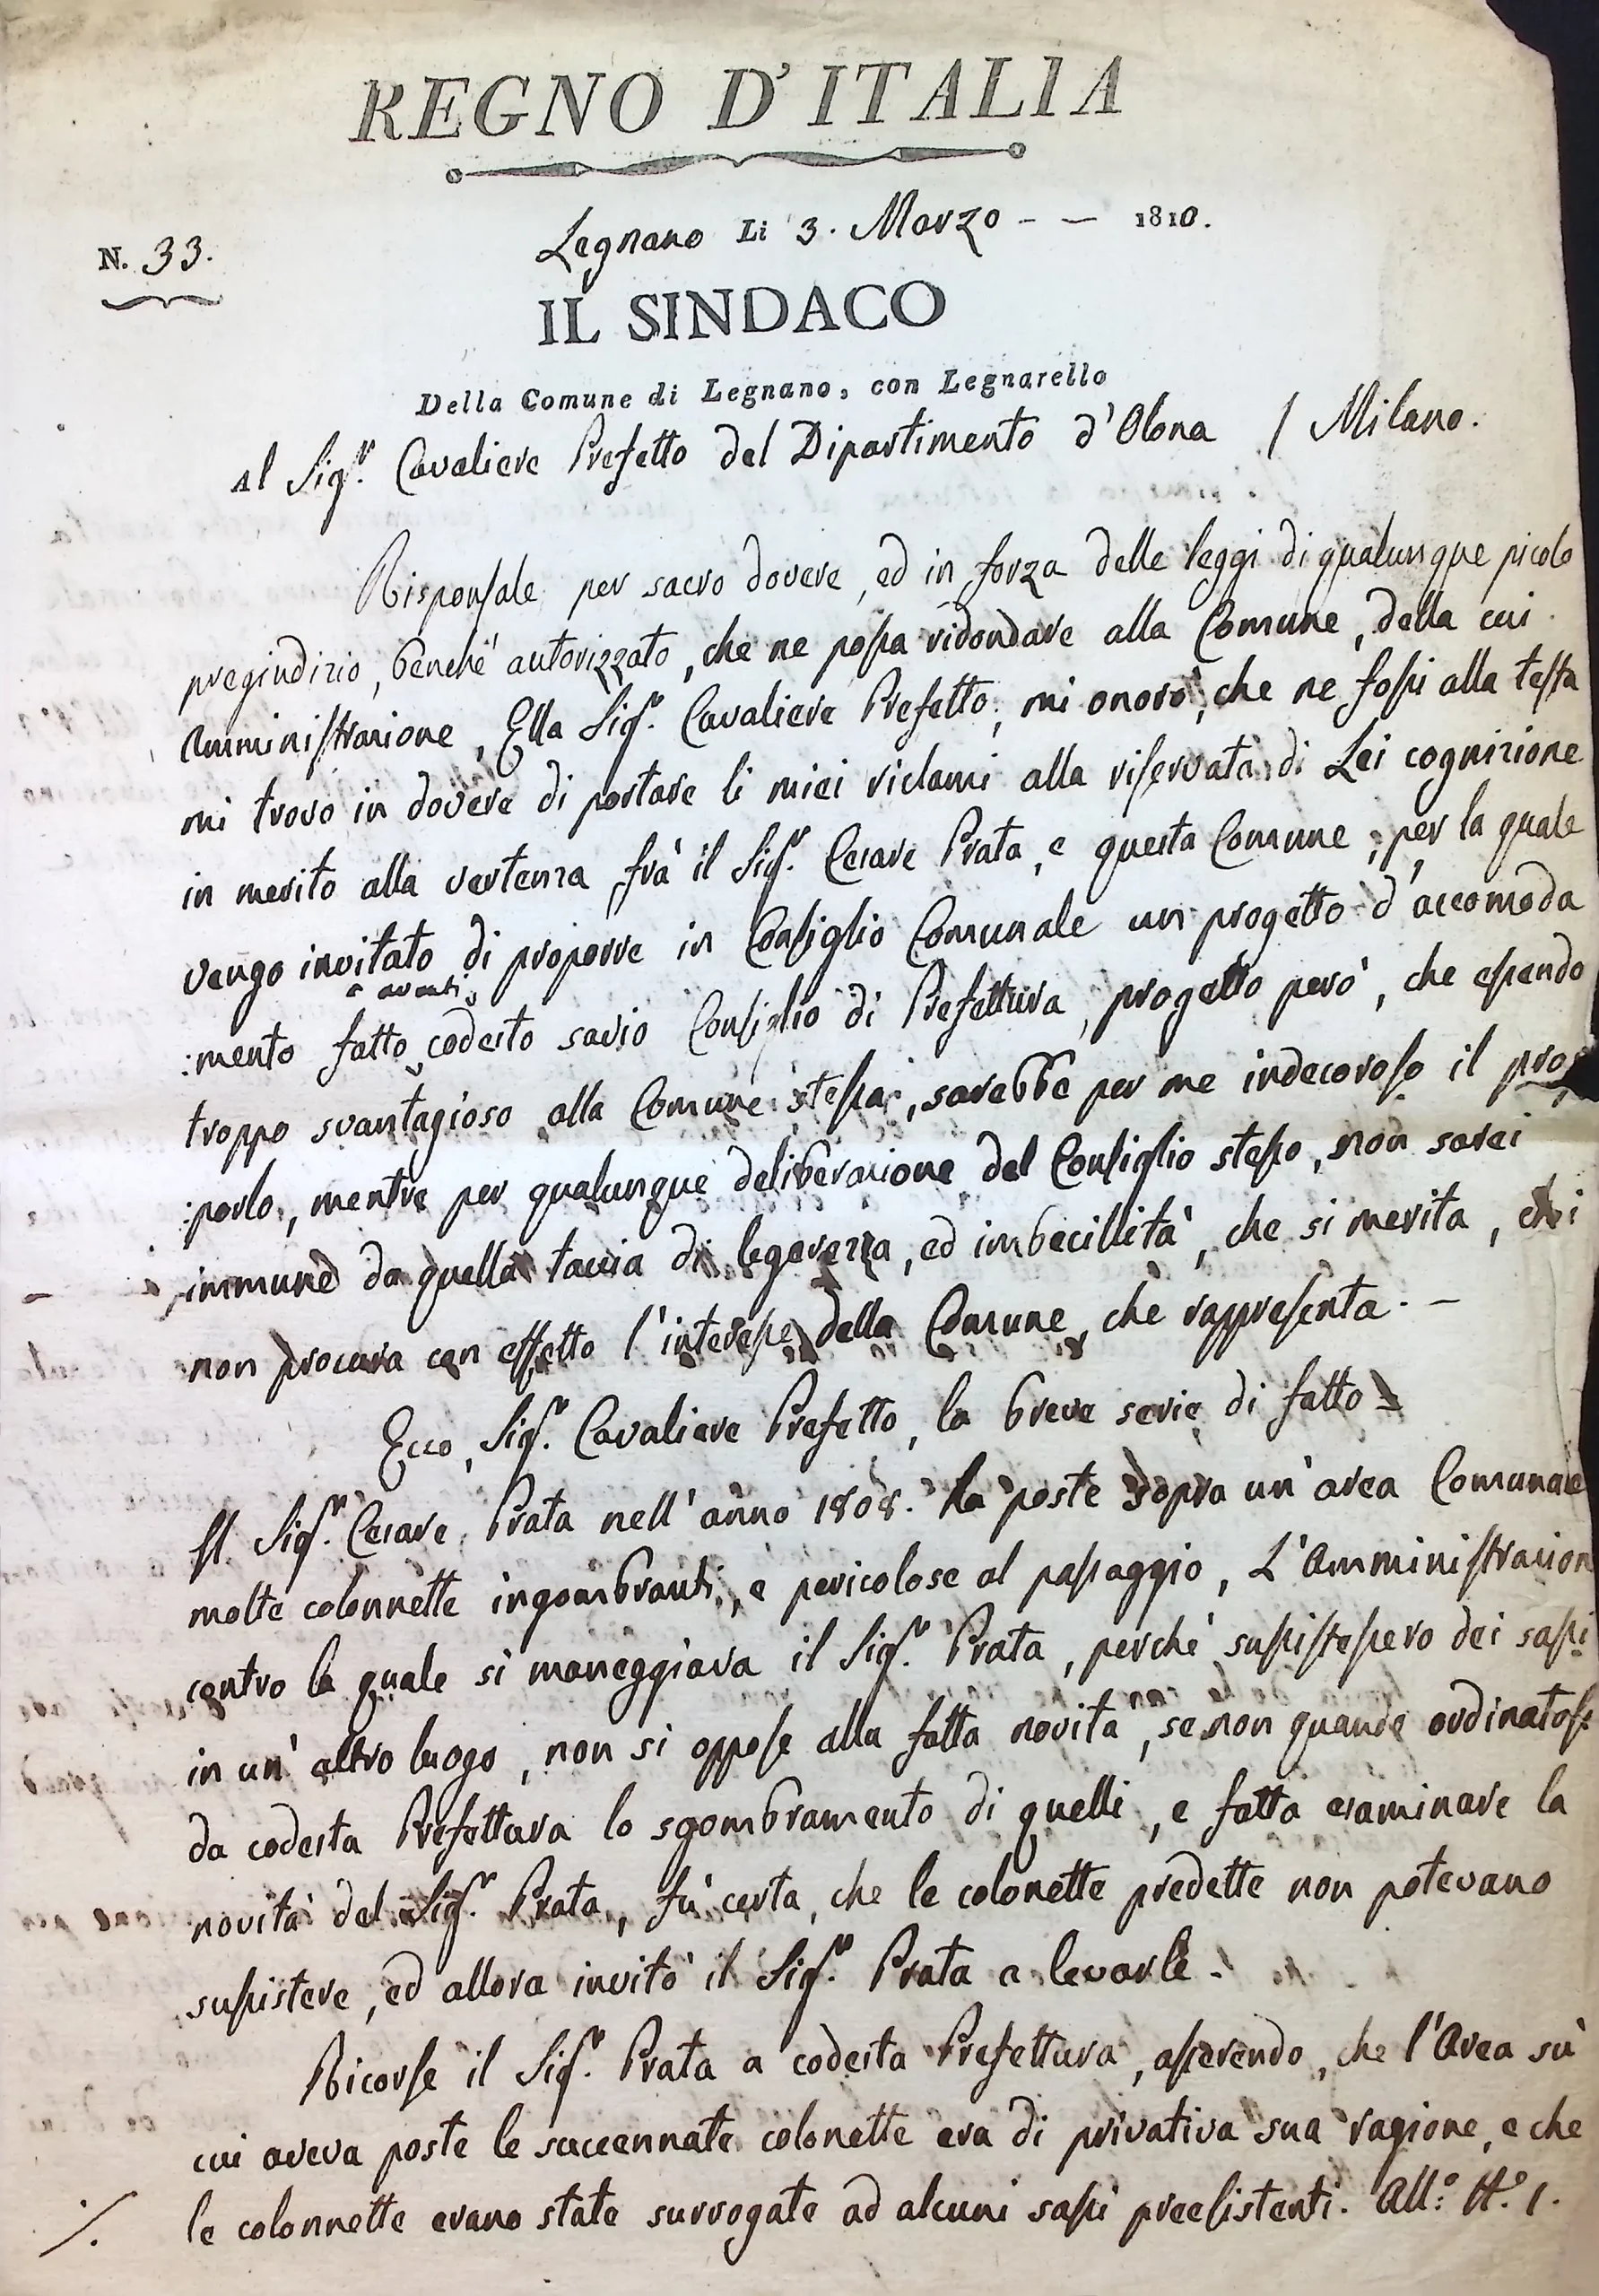 REGNO D'ITALIA
Legnano Li 3. Marzo - - 1810.
N. 33.
IL SINDACO
Della Comune di Legnano, con Legnarello
Al Sigr. Cavaliere Prefetto del Dipartimento d'Olona / Milano.
Risponsale per sacro dovere, ed in forza delle leggi di qualunque picolo
pregiudizio, benchè autorizzato, che ne possa ridondare alla Comune, della cui
Amministrazione, Ella Sigr. Cavaliere Prefetto, mi onorò, che ne fossi alla testa
mi trovo in dovere di portare li miei riclami alla riservata di Lei cognizione
in merito alla vertenza frà il Sigr. Cesare Prata, e questa Comune, per la quale
vengo invitato di proporre in Consiglio Comunale un progetto d'accomoda
:mento fatto a avanti codesto savio Consiglio di Prefettura, progetto però, che essendo
troppo svantagioso alla Comune stessa, sarebbe per me indecoroso il pro
:porlo, mentre per qualunque deliberazione del Consiglio stesso, non sarei
immune da quella taccia di legerezza, ed imbecillità, che si merita, chi
non procura con effetto l'interesse della Comune, che rappresenta. -
Ecco, Sigr. Cavaliere Prefetto, la breve serie di fatto
Il Sigr. Cesare Prata nell'anno 1808. ha poste sopra un'area Comunale
molte colonnette ingombranti, e pericolose al passaggio, L'Amministrazion
contro la quale si maneggiava il Sigr. Prata, perchè sussistessero dei sassi
in un'altro luogo, non si oppose alla fatta novità, se non quando ordinatosi
da codesta Prefettura lo sgombramento di quelli, e fatta esaminare la
novità del Sigr. Prata, fù certa, che le colonette predette non potevano
sussistere, ed allora invitò il Sigr. Prata a levarle.
Ricorse il Sigr. Prata a codesta Prefettura, asserendo, che l'Area sù
cui aveva poste le succennate colonette era di privativa sua ragione, e che
le colonnette erano state surrogate ad alcuni sassi preesistenti. All.o N.o 1.
./.